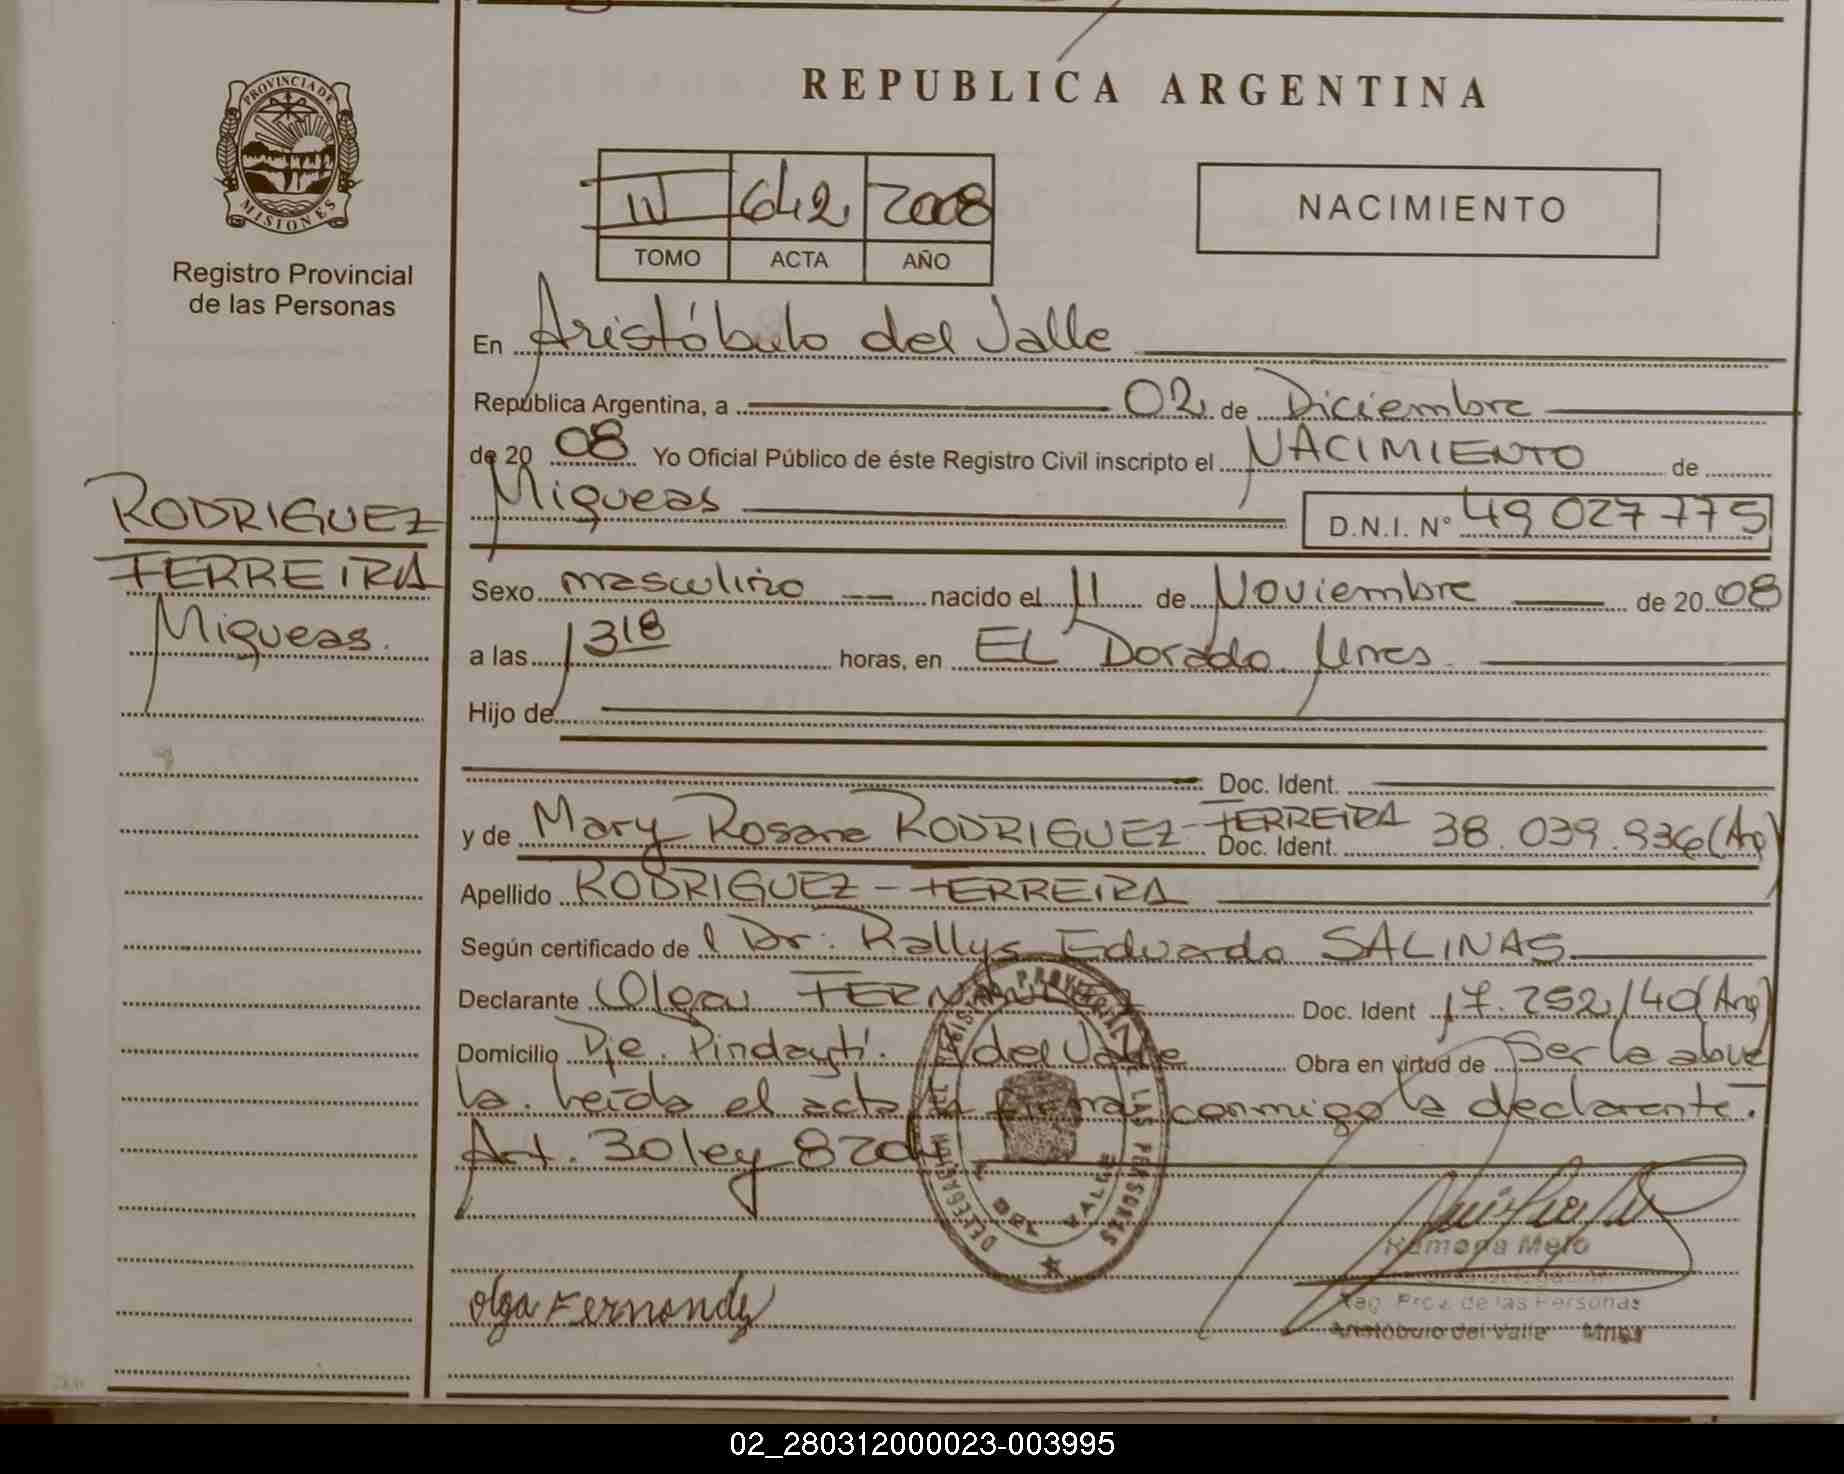 REPUBLICA ARGENTINA
PROVINCIA DE
MISIONES
Registro Provincial
de las Personas
III 642 2008
TOMO ACTA AÑO
NACIMIENTO
En Aristóbulo del Valle
República Argentina, a 02 de Diciembre
de 20 08 Yo Oficial Público de éste Registro Civil inscripto el NACIMIENTO de
Miqueas D.N.I. N° 49 027 775
RODRIGUEZ
FERREIRA
Miqueas.
Sexo masculino nacido el 11 de Noviembre de 20 08
a las 1318 horas, en EL Dorado Mnes.
Hijo de
Doc. Ident.
y de Mary Rosane RODRIGUEZ-FERREIRA Doc. Ident. 38.039.936 (Arg)
Apellido RODRIGUEZ-FERREIRA
Según certificado de l Dr. Rallys Eduardo SALINAS
Declarante Olga FERNANDEZ Doc. Ident 17.252.140 (Arg)
Domicilio Pje. Pindaytí. A del Valle Obra en virtud de Ser la abue
la. Leída el acta la firma conmigo la declarante.
Art. 30 ley 8204
Olga Fernandez
Ramona Melo
Reg. Prov. de las Personas
Aristóbulo del Valle Mnes
02_280312000023-003995